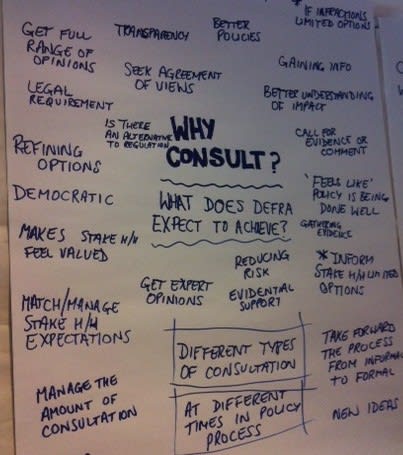 * IF INFRACTIONS,
LIMITED OPTIONS
GET FULL
RANGE OF
OPINIONS
TRANSPARENCY
BETTER
POLICIES
SEEK AGREEMENT
OF VIEWS
GAINING INFO
LEGAL
REQUIREMENT
BETTER UNDERSTANDING
OF IMPACT
IS THERE
AN ALTERNATIVE
TO REGULATION
WHY
CONSULT?
CALL FOR
EVIDENCE OR
COMMENT
REFINING
OPTIONS
DEMOCRATIC
WHAT DOES DEFRA
EXPECT TO ACHIEVE?
'FEELS LIKE'
POLICY IS BEING
DONE WELL
GATHERING
EVIDENCE
MAKES STAKE H/H
FEEL VALUED
REDUCING
RISK
* INFORM
STAKE H/H LIMITED
OPTIONS
GET EXPERT
OPINIONS
EVIDENTIAL
SUPPORT
MATCH/MANAGE
STAKE H/H
EXPECTATIONS
DIFFERENT TYPES
OF CONSULTATION
TAKE FORWARD
THE PROCESS
FROM INFORMAL
TO FORMAL
MANAGE THE
AMOUNT OF
CONSULTATION
AT DIFFERENT
TIMES IN POLICY
PROCESS
NEW IDEAS